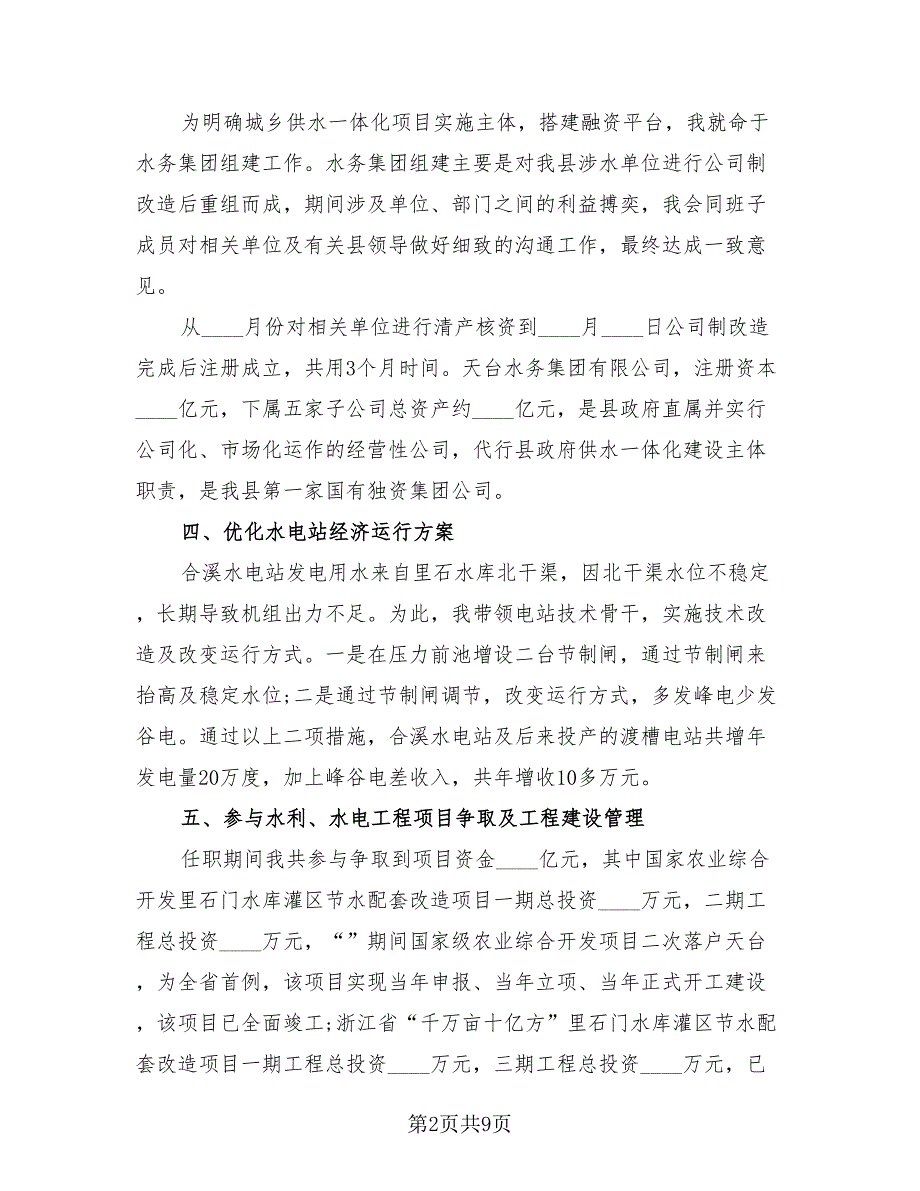 为明确城乡供水一体化项目实施主体，搭建融资平台，我就命于
水务集团组建工作。水务集团组建主要是对我县涉水单位进行公司制
改造后重组而成，期间涉及单位、部门之间的利益搏奕，我会同班子
成员对相关单位及有关县领导做好细致的沟通工作，最终达成一致意
见。
从____月份对相关单位进行清产核资到____月____日公司制改造
完成后注册成立，共用3个月时间。天台水务集团有限公司，注册资本
____亿元，下属五家子公司总资产约____亿元，是县政府直属并实行
公司化、市场化运作的经营性公司，代行县政府供水一体化建设主体
职责，是我县第一家国有独资集团公司。
四、优化水电站经济运行方案
合溪水电站发电用水来自里石水库北干渠，因北干渠水位不稳定
，长期导致机组出力不足。为此，我带领电站技术骨干，实施技术改
造及改变运行方式。一是在压力前池增设二台节制闸，通过节制闸来
抬高及稳定水位;二是通过节制闸调节，改变运行方式，多发峰电少发
谷电。通过以上二项措施，合溪水电站及后来投产的渡槽电站共增年
发电量20万度，加上峰谷电差收入，共年增收10多万元。
五、参与水利、水电工程项目争取及工程建设管理
任职期间我共参与争取到项目资金____亿元，其中国家农业综合
开发里石门水库灌区节水配套改造项目一期总投资____万元，二期工
程总投资____万元，“”期间国家级农业综合开发项目二次落户天台
，为全省首例，该项目实现当年申报、当年立项、当年正式开工建设
，该项目已全面竣工;浙江省“千万亩十亿方”里石门水库灌区节水配
套改造项目一期工程总投资____万元，三期工程总投资____万元，已
第2页共9页